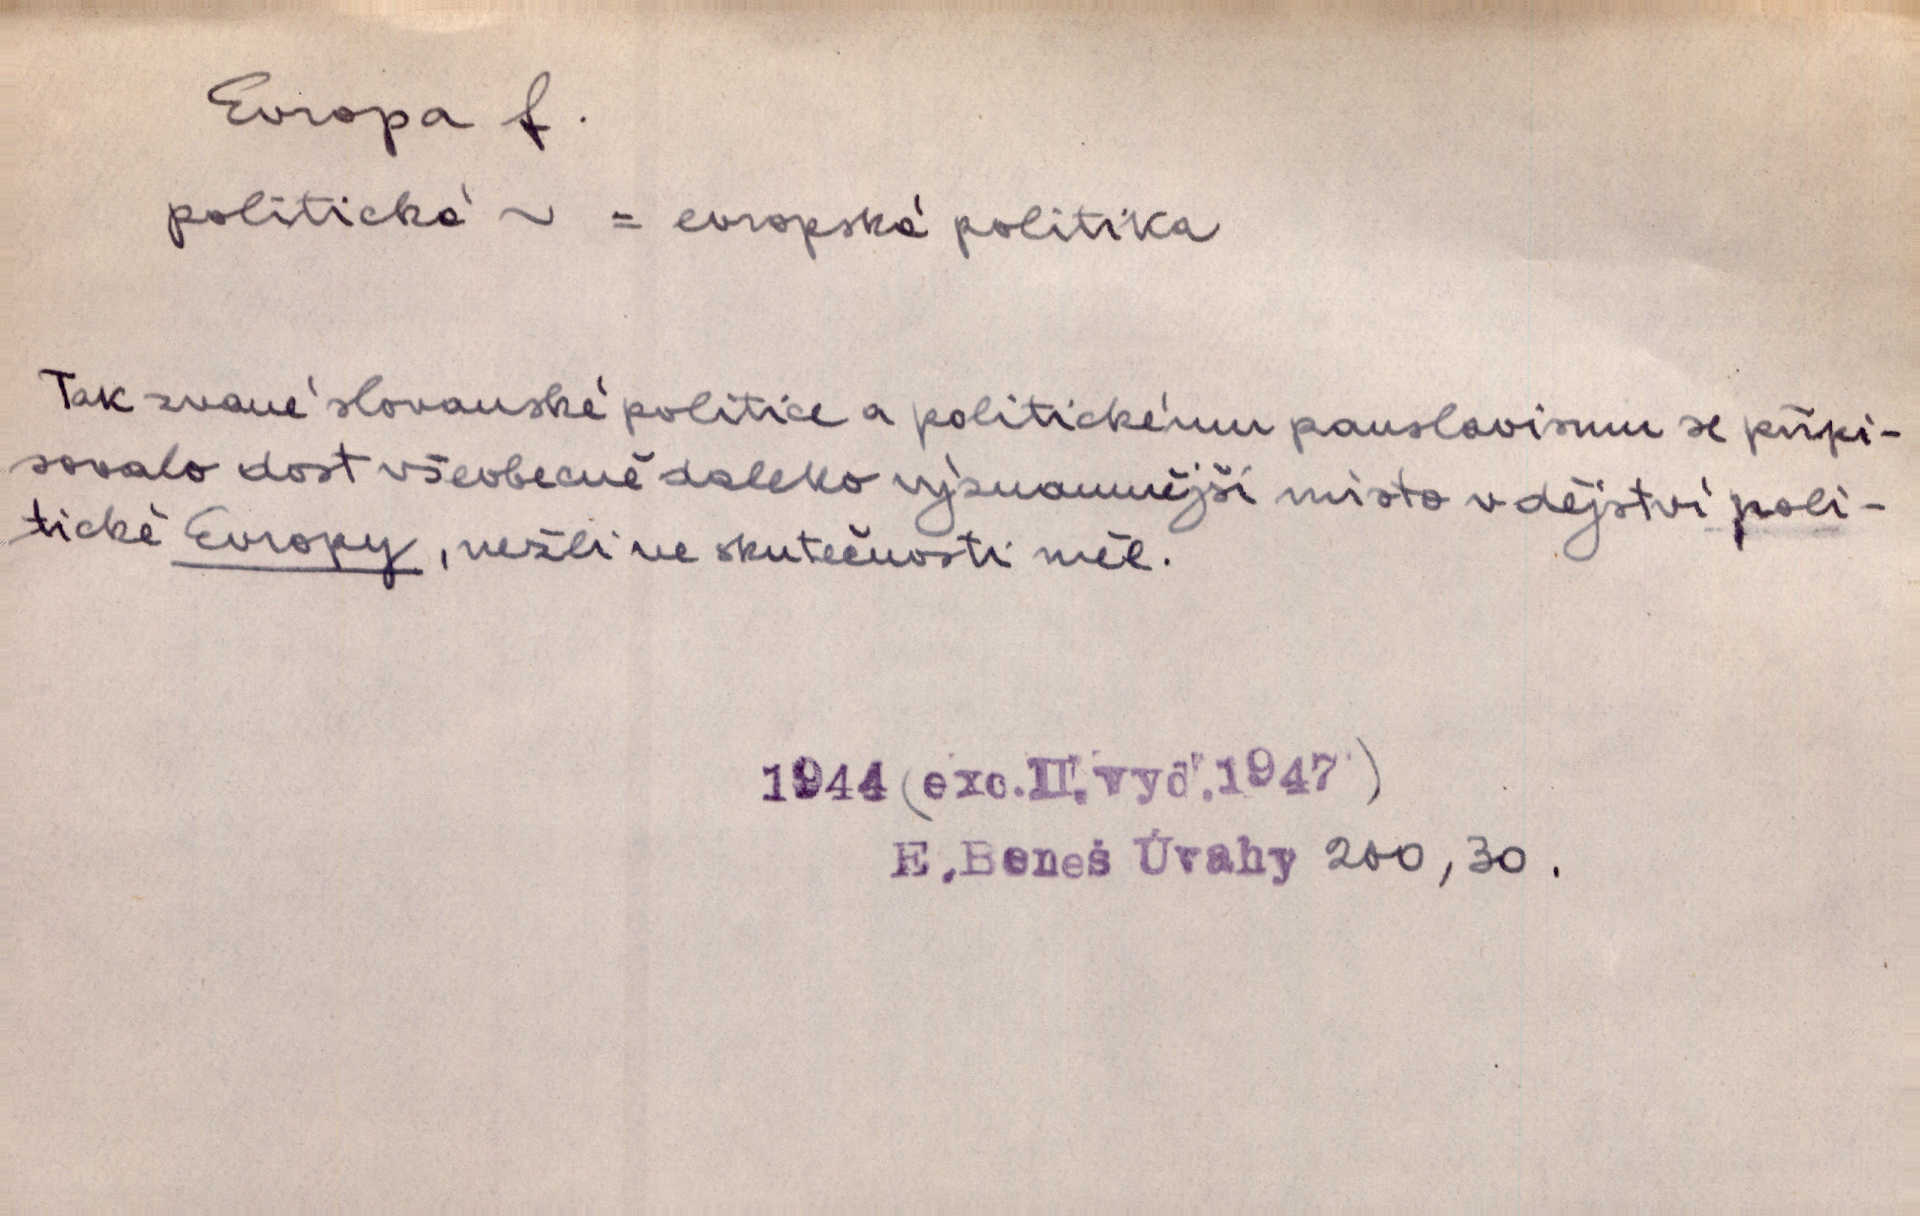 Evropa f.
politická ~ = evropská politika
Tak zvané slovanské politice a politickému panslavismu se připi-
sovalo dost všeobecně daleko významnější místo v dějství poli-
tické Evropy, nežli ve skutečnosti měl.
1944 (exc. II. vyd. 1947)
E. Beneš Úvahy 200, 30.